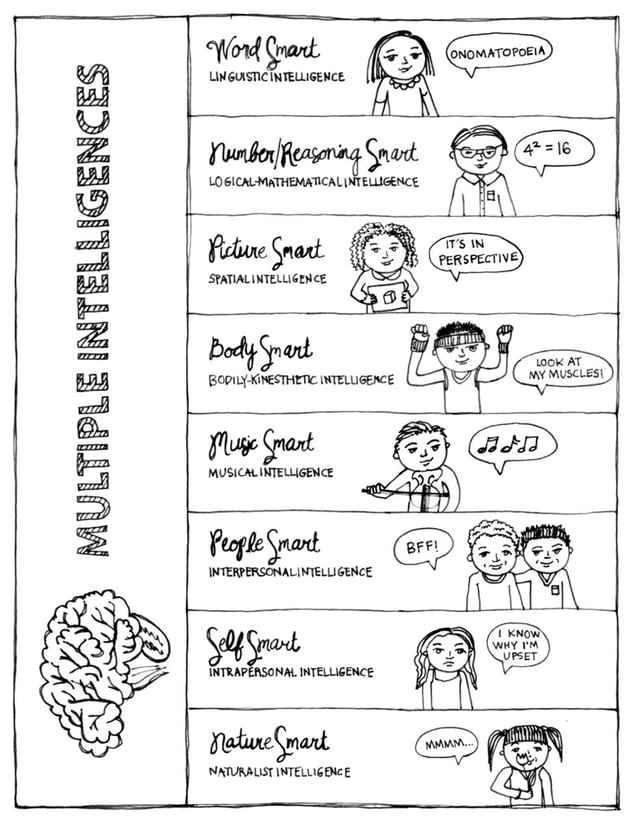 MULTIPLE INTELLIGENCES
Word Smart
LINGUISTIC INTELLIGENCE
ONOMATOPOEIA
Number/Reasoning Smart
LOGICAL-MATHEMATICAL INTELLIGENCE
4² = 16
Picture Smart
SPATIAL INTELLIGENCE
IT'S IN
PERSPECTIVE
Body Smart
BODILY-KINESTHETIC INTELLIGENCE
LOOK AT
MY MUSCLES!
Music Smart
MUSICAL INTELLIGENCE
People Smart
INTERPERSONAL INTELLIGENCE
BFF!
Self Smart
INTRAPERSONAL INTELLIGENCE
I KNOW
WHY I'M
UPSET
Nature Smart
NATURALIST INTELLIGENCE
MMMM...